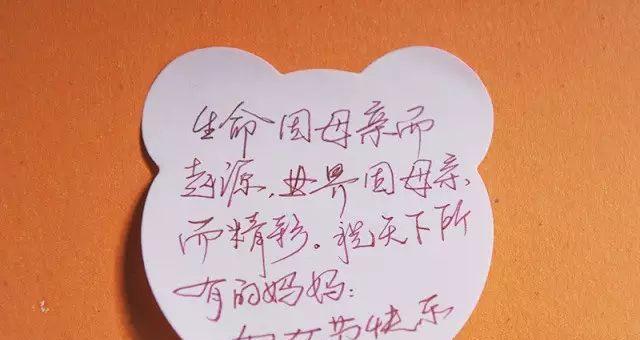 生命因母亲而
起源，世界因母亲
而精彩。祝天下所
有的妈妈：
快乐